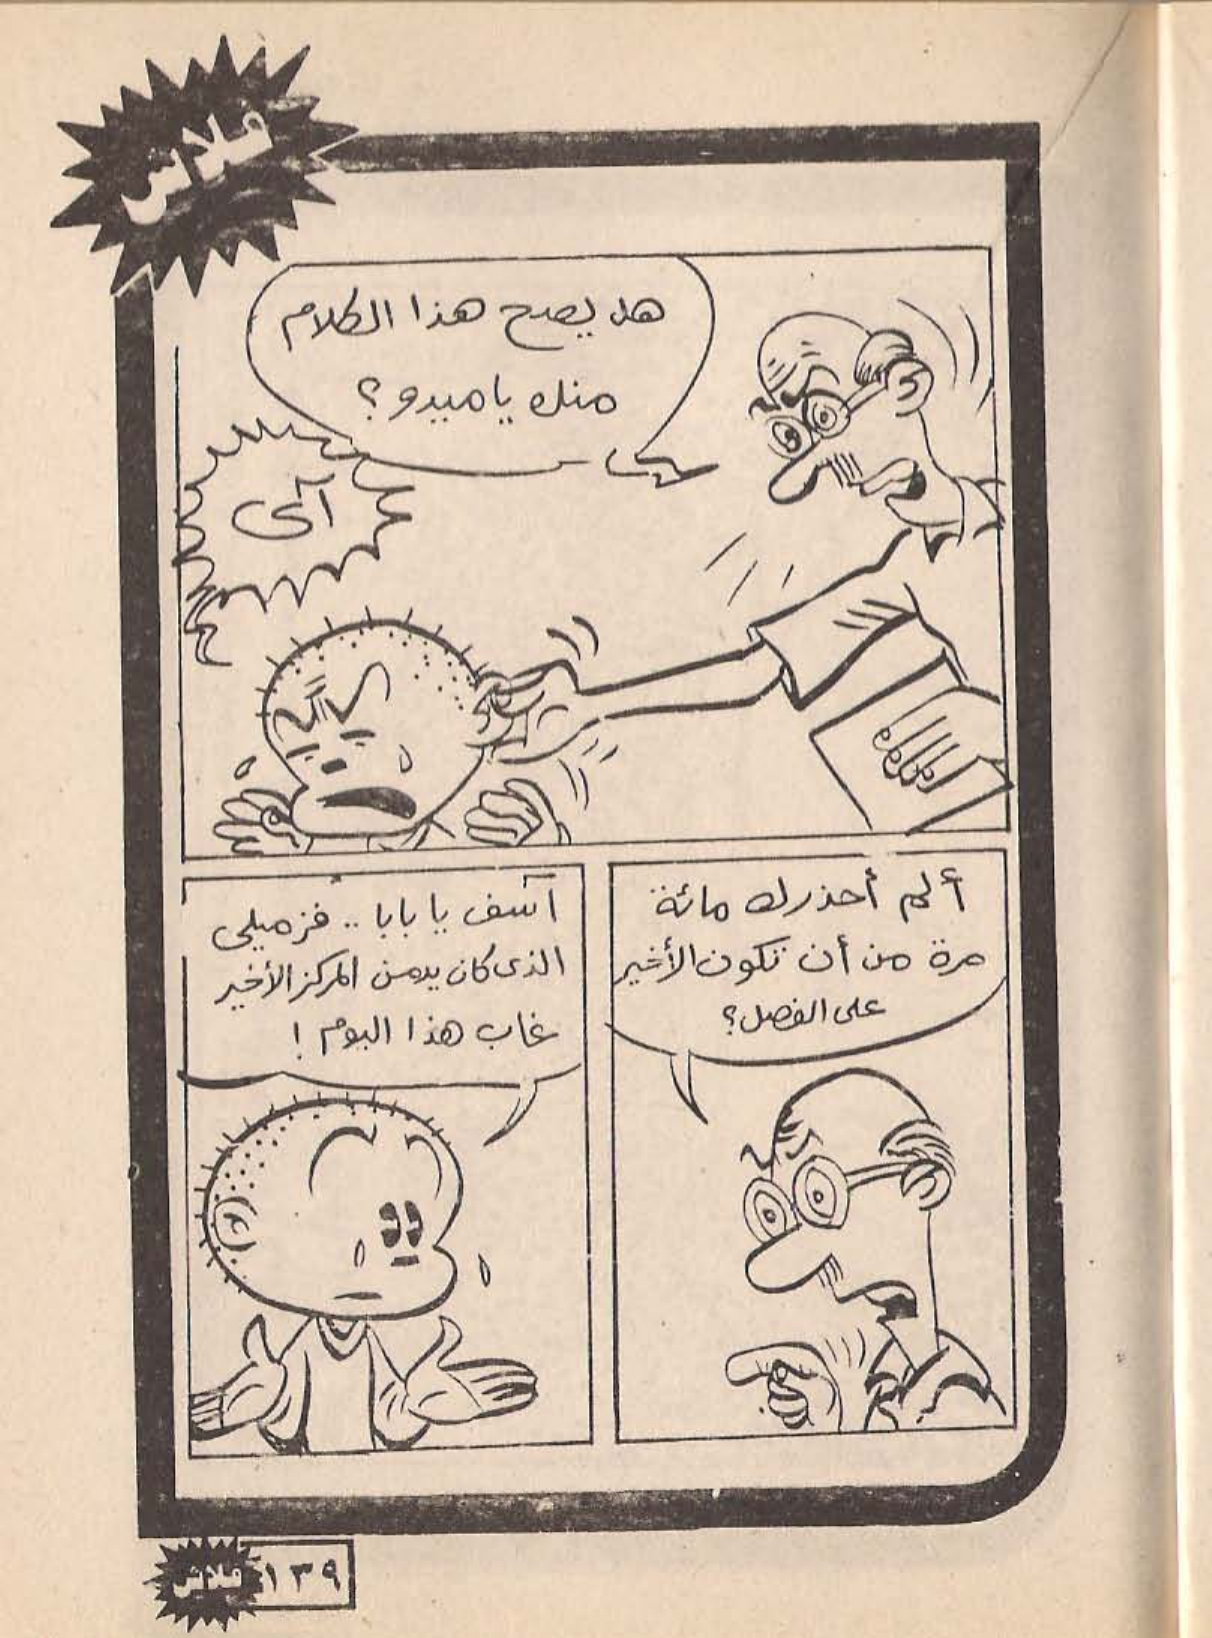 فلاش
هل يصح هذا الكلام
منك يا ميدو؟
آى
ألم أحذرك مائة
مرة من أن تكون الأخير
على الفصل؟
آسف يا بابا .. فزميلى
الذى كان يدمن المركز الأخير
غاب هذا اليوم !
فلاش ١٣٩